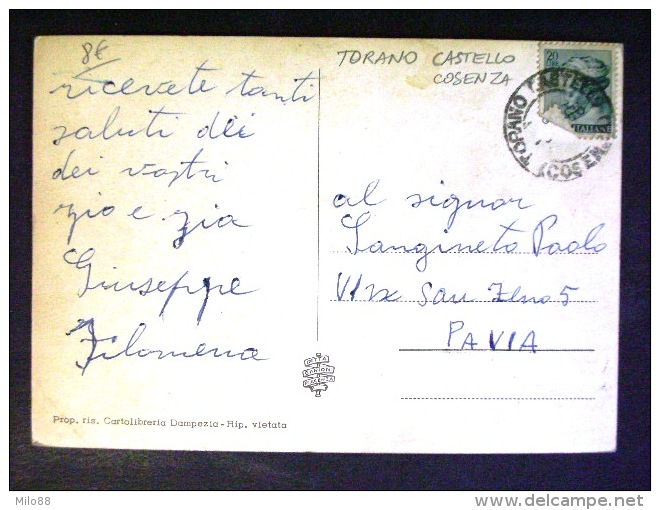 8€
TORANO CASTELLO
COSENZA
ricevete tanti
saluti dei
dei vostri
zio e zia
Giuseppe
Filomena
20
ITALIANE
TORANO CASTELLO
(COSENZA)
al signor
Sangineto Paolo
Via San Zeno 5
PAVIA
Prop. ris. Cartolibreria Dampezia - Rip. vietata
Milo88
delcampe.net